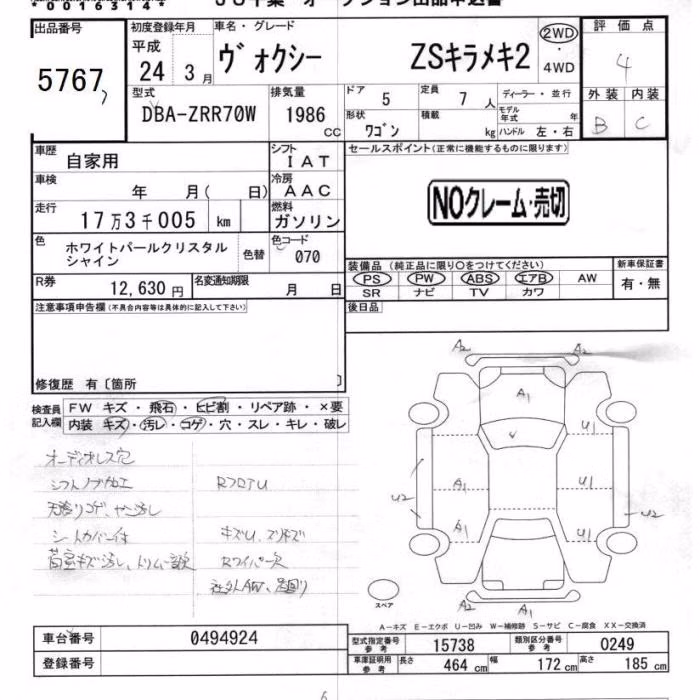 0016314
出品番号
5767
初度登録年月
平成
24 3月
車名・グレード
ヴォクシー ZSキラメキ2
2WD
・
4WD
評価点
4
外装 内装
B C
型式
DBA-ZRR70W
排気量
1986
CC
ドア
5
定員
7 人
ディーラー・並行
モデル年式 年
形状
ワゴン
積載
kg
ハンドル 左・右
車歴
自家用
シフト
IAT
車検
年 月( 日)
冷房
AAC
走行
17万3千005 km
燃料
ガソリン
色
ホワイトパールクリスタル
シャイン
色替
色コード
070
R券
12,630 円
名変通知期限
月 日
セールスポイント(正常に機能するものに限ります)
NOクレーム・売切
装備品 (純正品に限り○をつけてください)
PS PW ABS エアB AW
SR ナビ TV カワ
新車保証書
有・無
後日品
注意事項申告欄(不具合内容等は具体的に記入して下さい)
修復歴 有〔箇所 〕
検査員
記入欄
FW キズ・飛石・ヒビ割・リペア跡・×要
内装 キズ・汚レ・コゲ・穴・スレ・キレ・破レ
オーディオレス穴
シフトノブ加工
RフロアU
天張りコゲ、
シートカバー付
キズU、スリキズ
Rワイパー欠
社外AW、足回り
A2 A2
A1
U1
A1 U1
U2 U2
A1 U1
A2 A1
スペア
A-キズ E-エクボ U-凹み W-補修跡 S-サビ C-腐食 XX-交換済
車台番号
0494924
登録番号
型式指定番号
参考
15738
類別区分番号
参考
0249
車庫証明用
参考
長さ
464 cm
幅
172 cm
高さ
185 cm
6